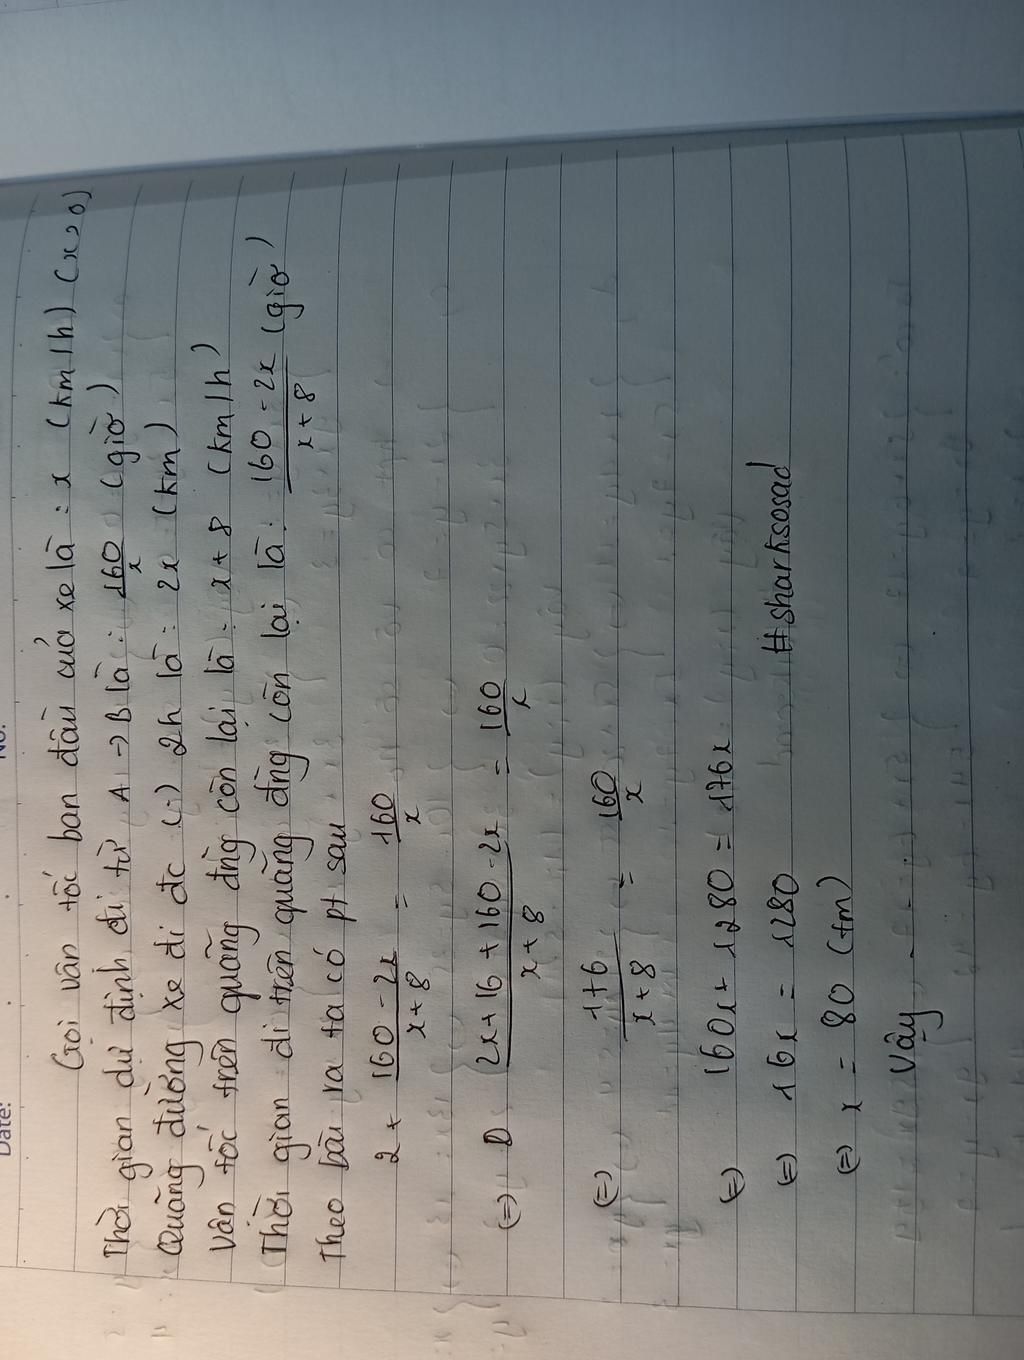 Date:
No.
Gọi vân tốc ban đầu của xe là : x (km/h) (x>0)
Thời gian dự định đi từ A -> B là : 160/x (giờ)
Quãng đường xe đi đc (-) 2h là : 2x (km)
Vân tốc trên quãng đng còn lại là : x + 8 (km/h)
Thời gian đi trên quãng đng còn lại là : 160 - 2x / x + 8 (giờ)
Theo bài ra ta có pt sau
2 + 160 - 2x / x + 8 = 160 / x
(=) 2x + 16 + 160 - 2x / x + 8 = 160 / x
(=) 176 / x + 8 = 160 / x
(=) 160x + 1280 = 176x
(=) 16x = 1280 #sharksosad
(=) x = 80 (tm)
Vây